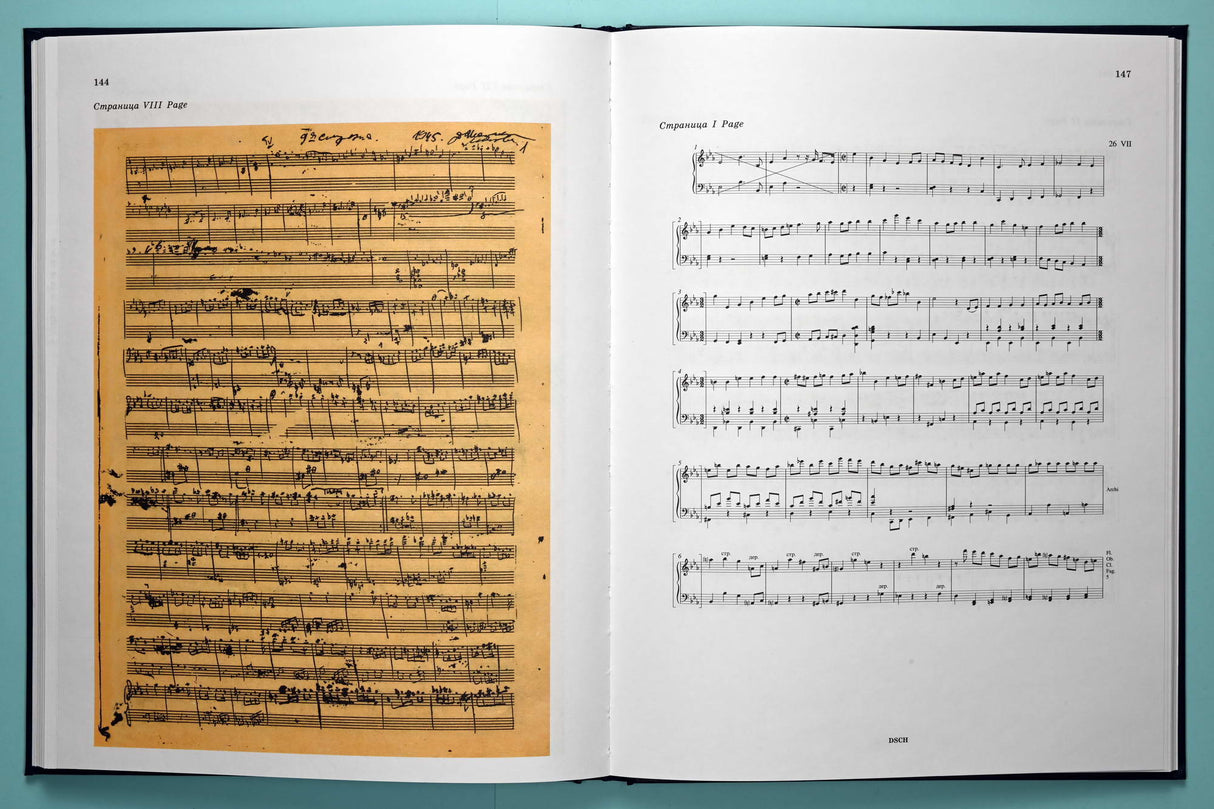 144
Страница VIII Page
1945.
1
147
Страница I Page
26 VII
1
2
3
4
5
Archi
6
стр. дер. стр. дер. стр. стр.
Fl.
Ob.
Cl.
Fag.
5
дер. дер.
DSCH